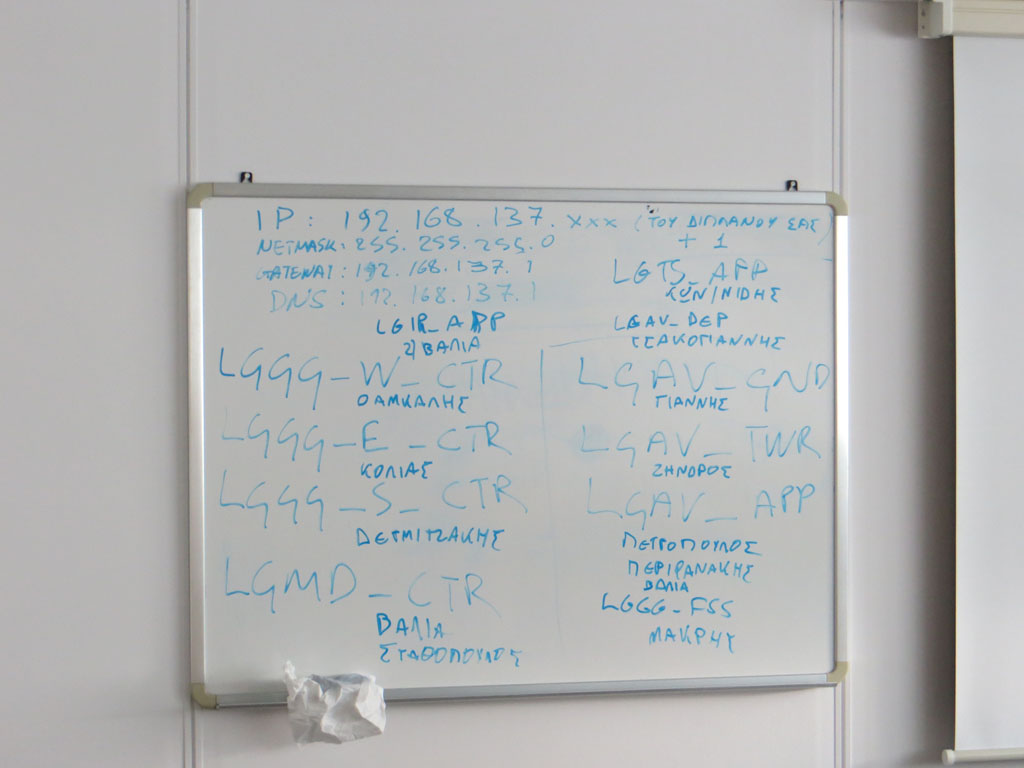 IP: 192.168.137.xxx (ΤΟΥ ΔΙΠΛΑΝΟΥ ΣΑΣ)
+ 1
NETMASK: 255.255.255.0
GATEWAY: 192.168.137.1
DNS: 192.168.137.1
LGIR_APP
2) ΒΑΛΙΑ
LGGG_W_CTR
LGGG_E_CTR
ΚΟΛΙΑΣ
LGGG_S_CTR
ΔΕΡΜΙΤΖΑΚΗΣ
LGMD_CTR
ΒΑΛΙΑ
ΣΤΑΘΟΠΟΥΛΟΣ
LGTS_APP
ΚΩΝ/ΝΙΔΗΣ
LGAV_DEP
ΤΣΑΚΟΓΙΑΝΝΗΣ
LGAV_GND
ΓΙΑΝΝΗΣ
LGAV_TWR
ΖΗΝΔΡΟΣ
LGAV_APP
ΠΕΤΡΟΠΟΥΛΟΣ
ΠΕΡΙΦΑΝΑΚΗΣ
ΒΑΛΙΑ
LGGG_FSS
ΜΑΚΡΗΣ